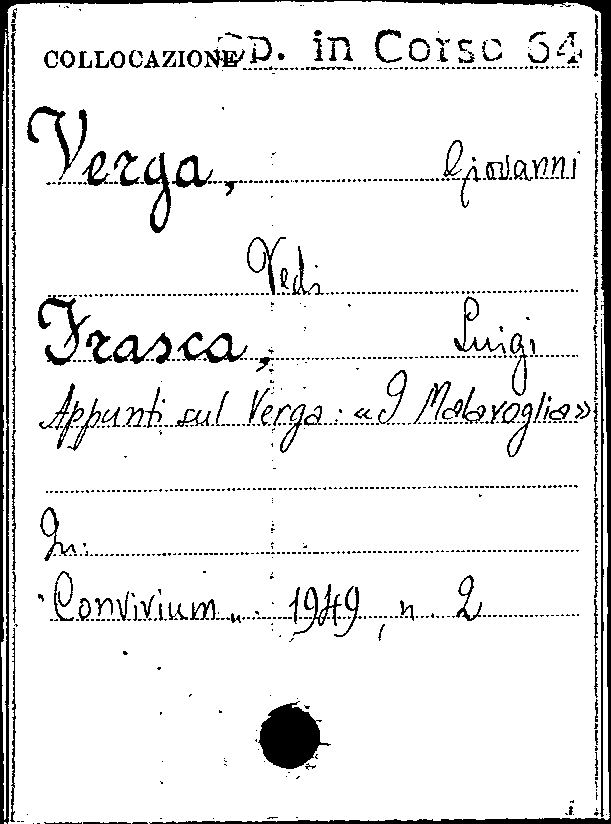 COLLOCAZIONE Op. in Corso 54
Verga, Giovanni
Vedi
Frasca, Luigi
Appunti sul Verga: «I Malavoglia»
In:
"Convivium„. 1949, n. 2